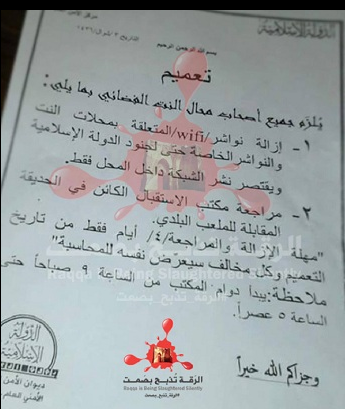 الدولة الإسلامية
بسم الله الرحمن الرحيم
تعميم
يلزم جميع أصحاب محال النت الفضائي بما يلي:
١- إزالة نواشر/wifi/المتعلقة بمحلات النت
والنواشر الخاصة حتى لجنود الدولة الإسلامية
ويقتصر نشر الشبكة داخل المحل فقط.
٢- مراجعة مكتب الاستقبال الكائن في الحديقة
المقابلة للملعب البلدي.
"مهلة الإزالة والمراجعة/٤/ أيام فقط من تاريخ
التعميم وكل مخالف سيعرّض نفسه للمحاسبة"
ملاحظة:يبدأ دوام المكتب من الساعة صباحاً حتى
الساعة ٥ عصراً.
وجزاكم الله خيراً
الدولة
الإسلامية
ديوان الأمن
الأمني العام
الرقة تذبح بصمت
Raqqa is Being Slaughtered Silently
الرقة تذبح بصمت
Raqqa is Being Slaughtered Silently
#الرقة_تذبح_بصمت